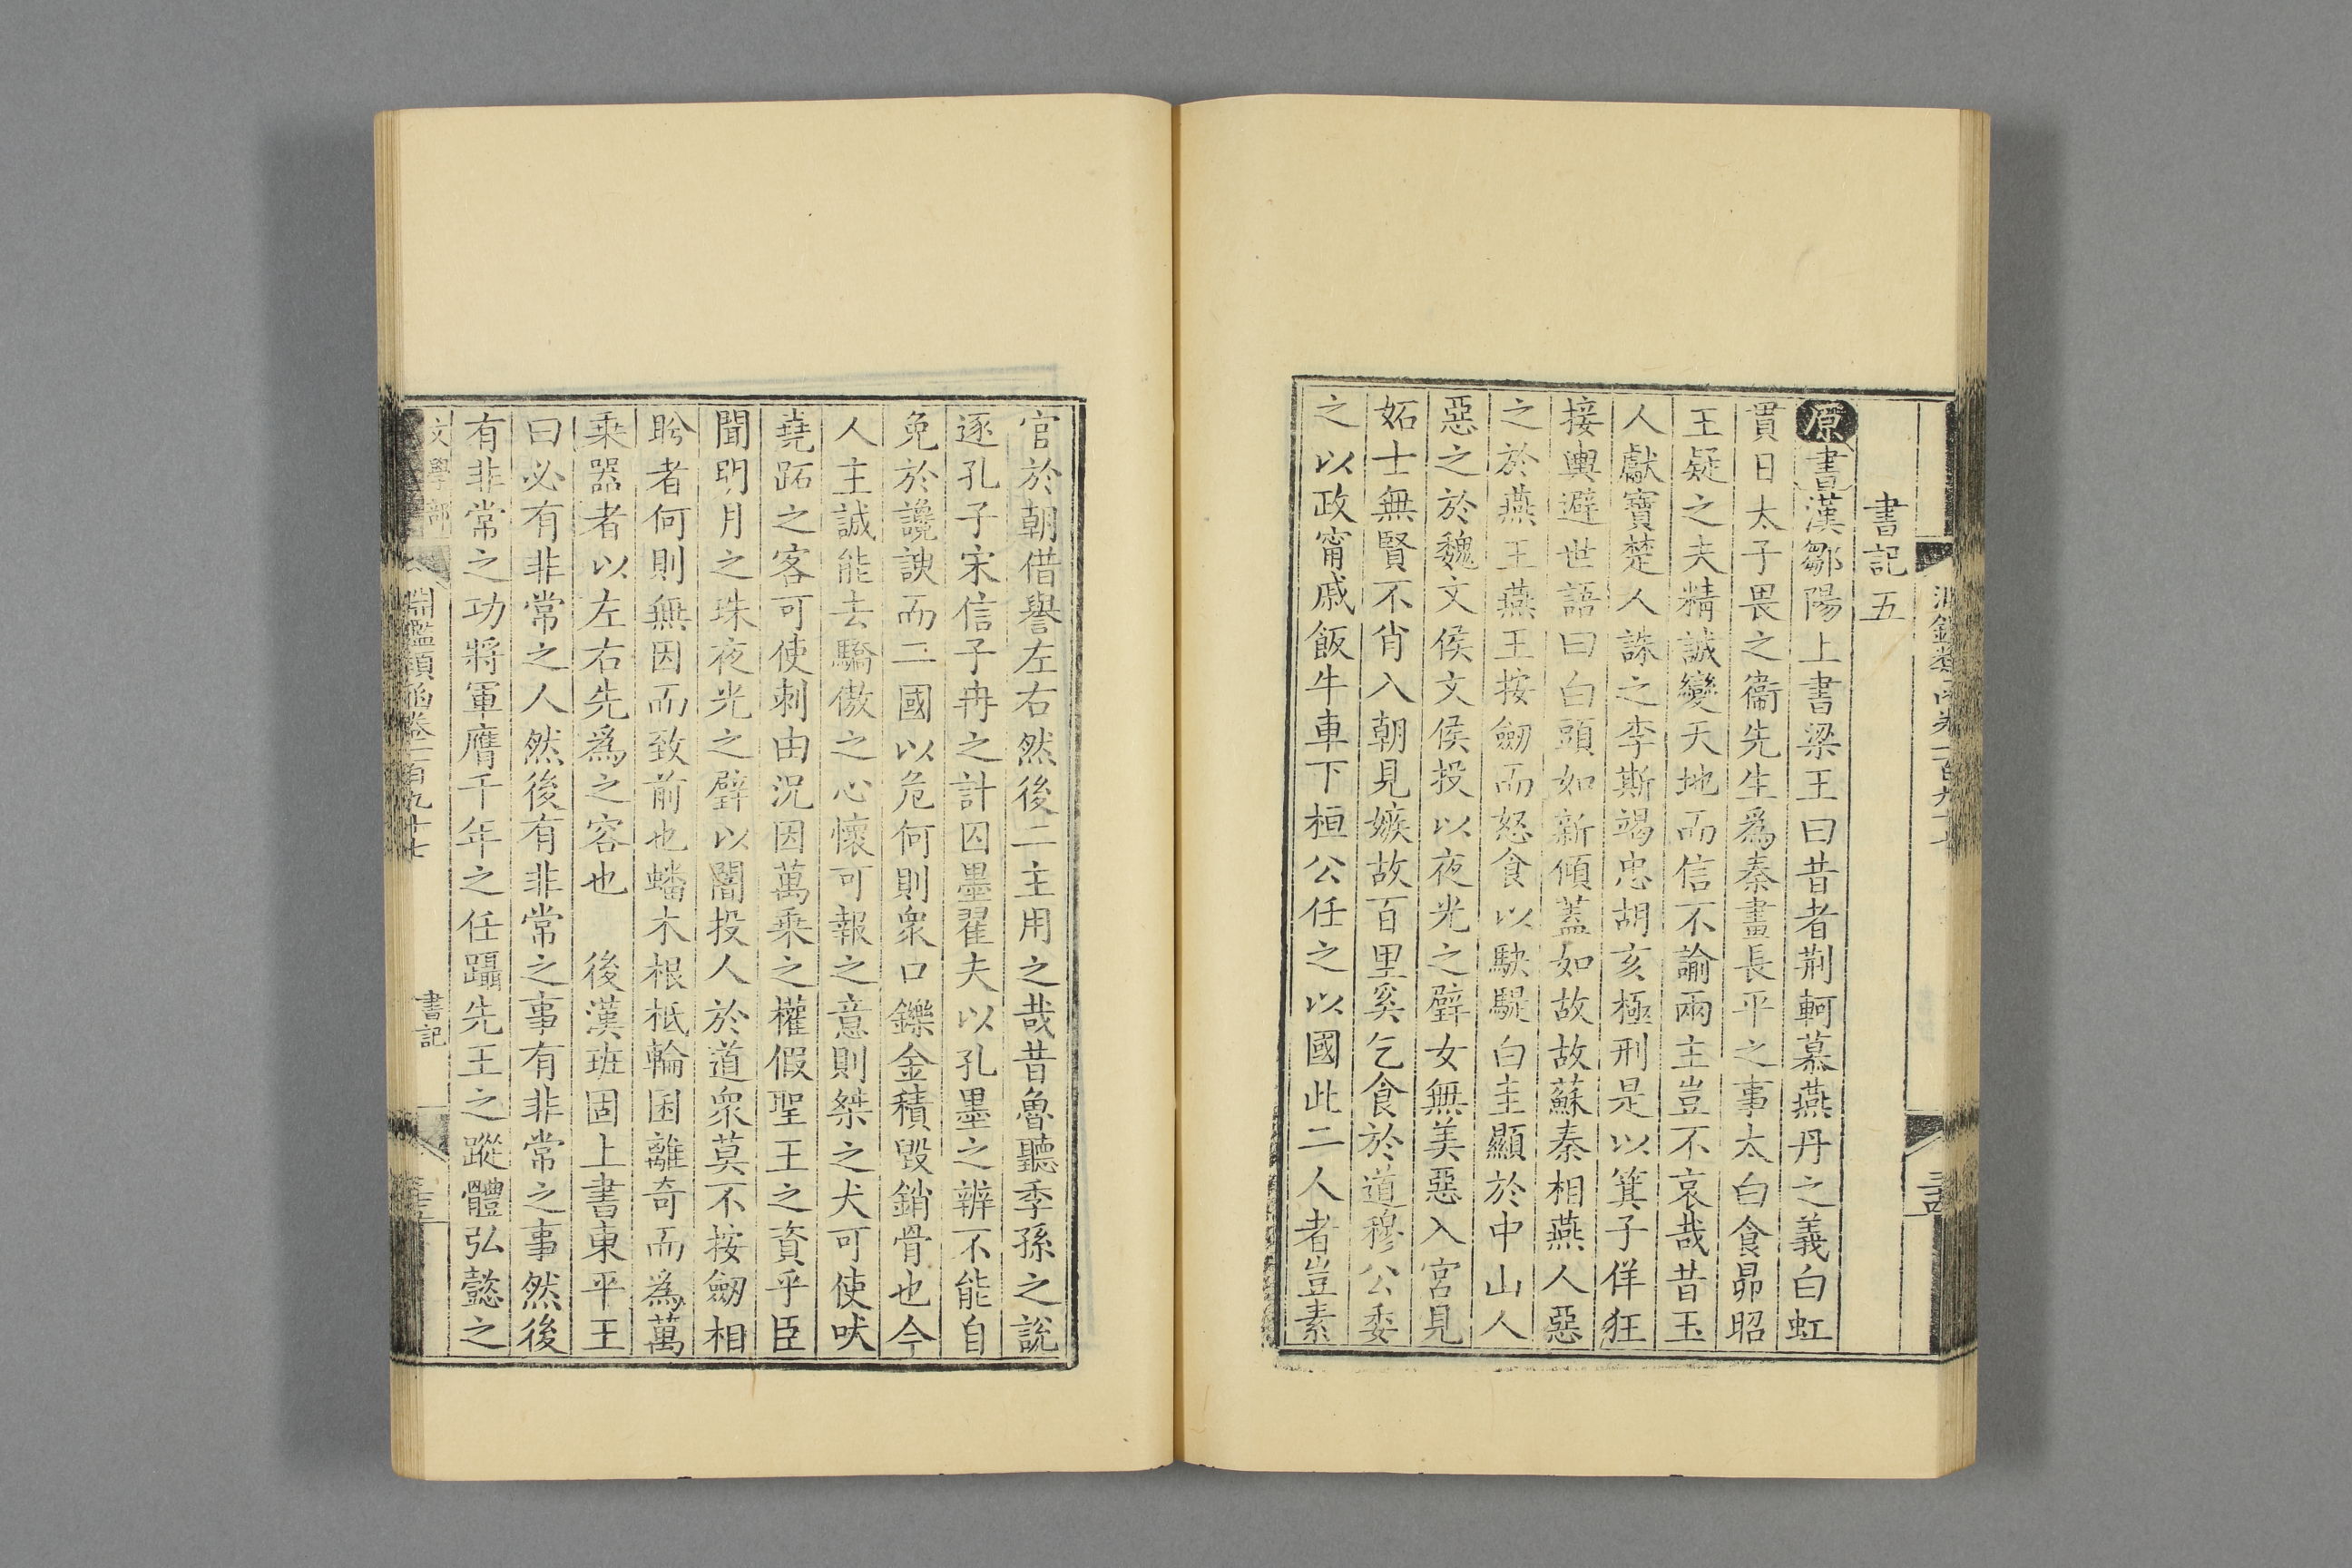 書記五
原書漢鄒陽上書梁王曰昔者荆軻慕燕丹之義白虹
貫日太子畏之衞先生爲秦畫長平之事太白食昴昭
王疑之夫精誠變天地而信不諭兩主豈不哀哉昔玉
人獻寶楚人誅之李斯竭忠胡亥極刑是以箕子佯狂
接輿避世語曰白頭如新傾蓋如故故蘇秦相燕人惡
之於燕王燕王按劒而怒食以駃騠白圭顯於中山人
惡之於魏文侯文侯投以夜光之璧女無美惡入宮見
妬士無賢不肖入朝見嫉故百里奚乞食於道穆公委
之以政甯戚飯牛車下桓公任之以國此二人者豈素
官於朝借譽左右然後二主用之哉昔魯聽季孫之說
逐孔子宋信子冉之計囚墨翟夫以孔墨之辨不能自
免於讒諛而二國以危何則衆口鑠金積毀銷骨也今
人主誠能去驕傲之心懷可報之意則桀之犬可使吠
堯跖之客可使刺由況因萬乗之權假聖王之資乎臣
聞明月之珠夜光之璧以闇投人於道衆莫不按劒相
盻者何則無因而致前也蟠木根柢輪囷離奇而爲萬
乗器者以左右先爲之容也 後漢班固上書東平王
曰必有非常之人然後有非常之事有非常之事然後
有非常之功將軍膺千年之任躡先王之蹤體弘懿之
文學部 淵鑑類函卷一百九十七 書記